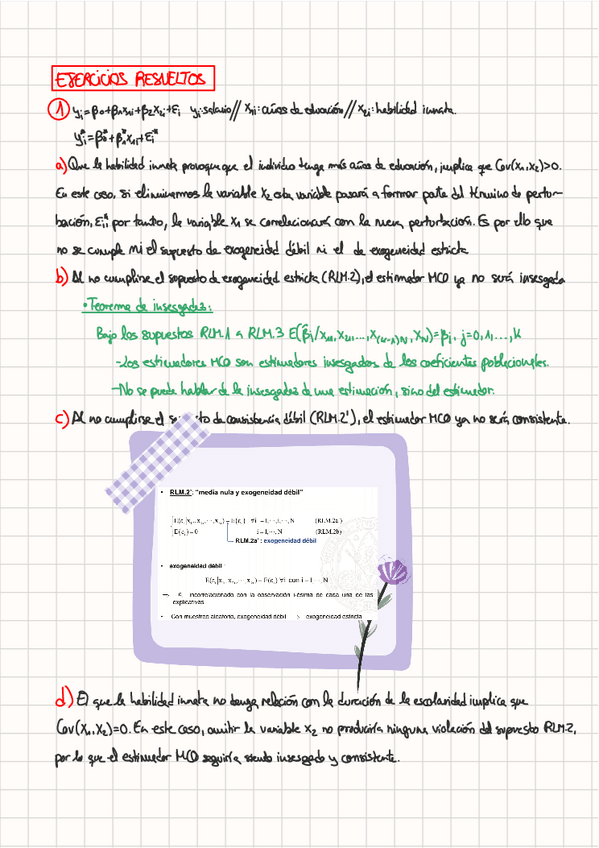 EJERCICIOS RESUELTOS
① yi=β0+β1x1i+β2x2i+εi yi:salario// x1i:años de educación// x2i:habilidad innata.
yi*=β0*+β1*x1i+εi*
a) Que la habilidad innata provoque que el individuo tenga más años de educación, implica que Cov(x1,x2)>0.
En este caso, si eliminamos la variable x2 esta variable pasará a formar parte del término de pertur-
bación, εi*; por tanto, la variable x1 se correlacionará con la nueva perturbación. Es por ello que
no se cumple ni el supuesto de exogeneidad débil ni el de exogeneidad estricta
b) Al no cumplirse el supuesto de exogeneidad estricta (RLM.2), el estimador MCO ya no será insesgado
• Teorema de insesgadez:
Bajo los supuestos RLM.1 a RLM.3 E(β̂j/x11,x21,...,x(k-1)N,XN)=βj, j=0,1,...,K
-Los estimadores MCO son estimadores insesgados de los coeficientes poblacionales.
-No se puede hablar de la insesgadez de una estimación, sino del estimador.
c) Al no cumplirse el de consistencia débil (RLM.2'), el estimador MCO ya no será consistente.
• RLM.2': "media nula y exogeneidad débil"
∀i i=1,...,N (RLM.2a')
E(εi)=0 i=1,...,N (RLM.2b)
RLM.2a': exogeneidad débil
• exogeneidad débil
=E(εi) ∀i con i=1,...,N
⇒ εi incorrelacionado con la observación i-ésima de cada una de las
explicativas
• Con muestras aleatoria, exogeneidad débil exogeneidad estricta
d) El que la habilidad innata no tenga relación con la duración de la escolaridad implica que
Cov(x1,x2)=0. En este caso, omitir la variable x2 no produciría ninguna violación del supuesto RLM.2,
por lo que el estimador MCO seguiría siendo insesgado y consistente.